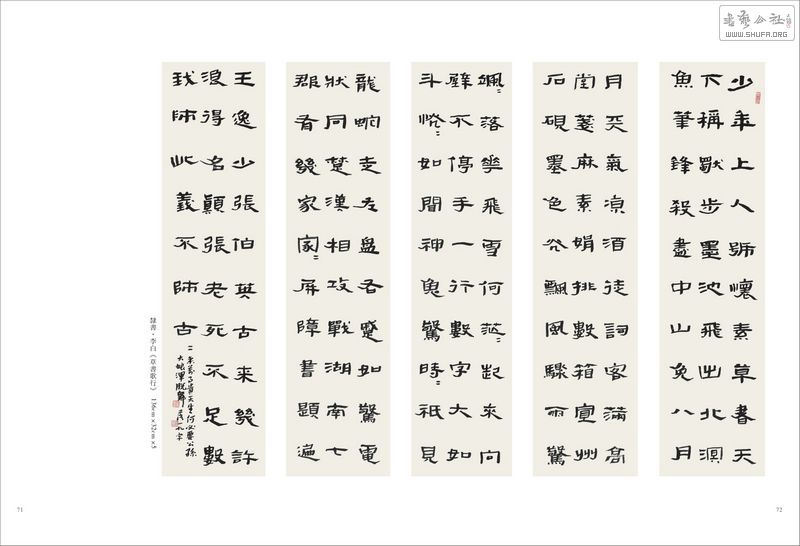 書藝公社
WWW.SHUFA.ORG
少年上人號懷素草書天
下稱獨步墨池飛出北溟
魚筆鋒殺盡中山兔八月
月天氣凉酒徒詞客滿高
堂箋麻素絹排數箱宣州
石硯墨色光飄風驟雨驚
颯〻落華飛雪何茫〻起來向
壁不停手一行數字大如
斗怳〻如聞神鬼驚時〻祇見
龍蛇走左盤右蹙如驚電
狀同楚漢相攻戰湖南七
郡有幾家家〻屏障書題遍
王逸少張伯英古來幾許
浪得名顛張老死不足數
我師此義不師古
來萬事貴天生何必要公孫
大娘渾脫舞
隸書·李白《草書歌行》 136cm×32cm×5
71
72